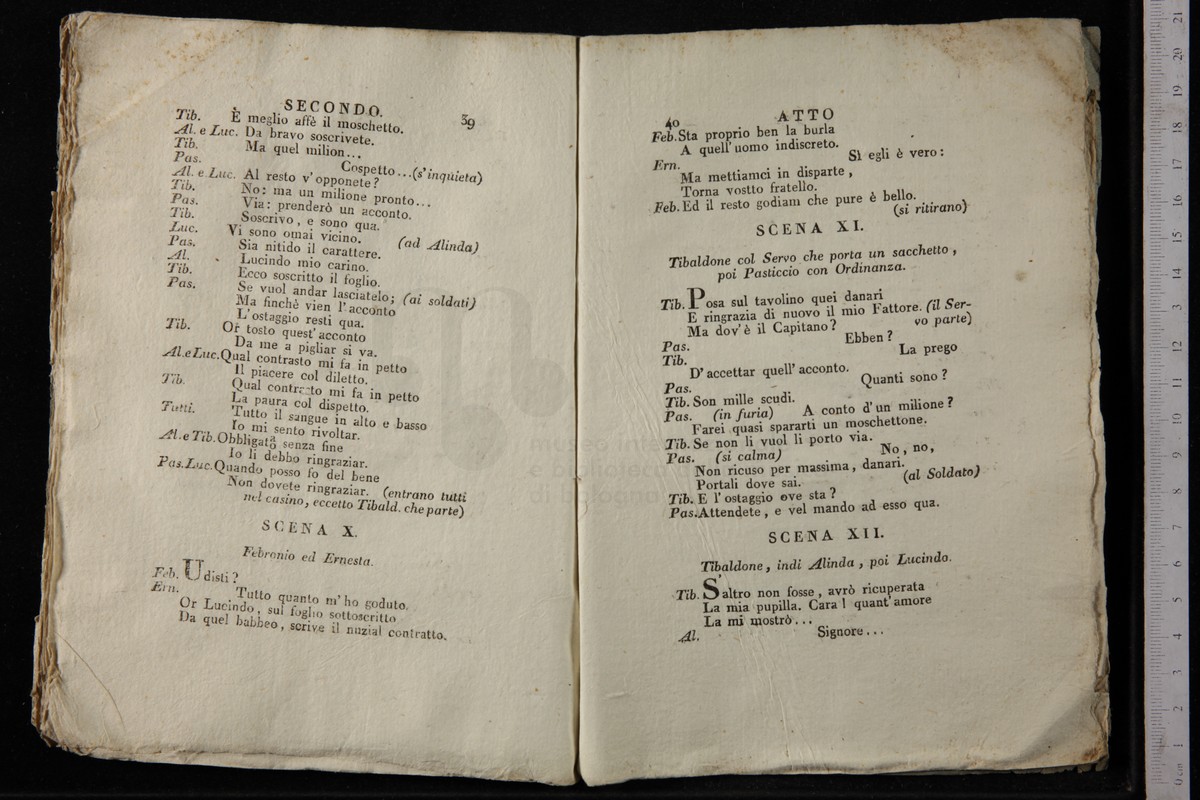 SECONDO. 39
Tib. È meglio affè il moschetto.
Al. e Luc. Da bravo soscrivete.
Tib. Ma quel milion...
Pas. Cospetto...(s'inquieta)
Al. e Luc. Al resto v'opponete?
Tib. No: ma un milione pronto...
Pas. Via: prenderò un acconto.
Tib. Soscrivo, e sono qua.
Luc. Vi sono omai vicino. (ad Alinda)
Pas. Sia nitido il carattere.
Al. Lucindo mio carino.
Tib. Ecco soscritto il foglio.
Pas. Se vuol andar lasciatelo; (ai soldati)
Ma finchè vien l'acconto
L'ostaggio resti qua.
Tib. Or tosto quest'acconto
Da me a pigliar si va.
Al.eLuc.Qual contrasto mi fa in petto
Il piacere col diletto.
Tib. Qual contrasto mi fa in petto
La paura col dispetto.
Tutti. Tutto il sangue in alto e basso
Io mi sento rivoltar.
Al.e Tib. Obbligatạ senza fine
Io li debbo ringraziar.
Pas.Luc.Quando posso fo del bene
Non dovete ringraziar. (entrano tutti
nel casino, eccetto Tibald. che parte)
SCENA X.
Febronio ed Ernesta.
Feb. Udisti?
Ern. Tutto quanto m'ho goduto.
Or Lucindo, sul foglio sottoscritto
Da quel babbeo, scrive il nuzial contratto.
40 ATTO
Feb.Sta proprio ben la burla
A quell'uomo indiscreto.
Ern. Sì egli è vero:
Ma mettiamci in disparte,
Torna vostto fratello.
Feb.Ed il resto godiam che pure è bello.
(si ritirano)
SCENA XI.
Tibaldone col Servo che porta un sacchetto,
poi Pasticcio con Ordinanza.
Tib. Posa sul tavolino quei danari
E ringrazia di nuovo il mio Fattore. (il Ser-
Ma dov'è il Capitano? vo parte)
Pas. Ebben?
Tib. La prego
D'accettar quell'acconto.
Pas. Quanti sono?
Tib. Son mille scudi.
Pas. (in furia) A conto d'un milione?
Farei quasi spararti un moschettone.
Tib. Se non li vuol li porto via.
Pas. (si calma) No, no,
Non ricuso per massima, danari.
Portali dove sai. (al Soldato)
Tib. E l'ostaggio ove sta?
Pas.Attendete, e vel mando ad esso qua.
SCENA XII.
Tibaldone, indi Alinda, poi Lucindo.
Tib. S'altro non fosse, avrò ricuperata
La mia pupilla. Cara! quant'amore
La mi mostrò...
Al. Signore...